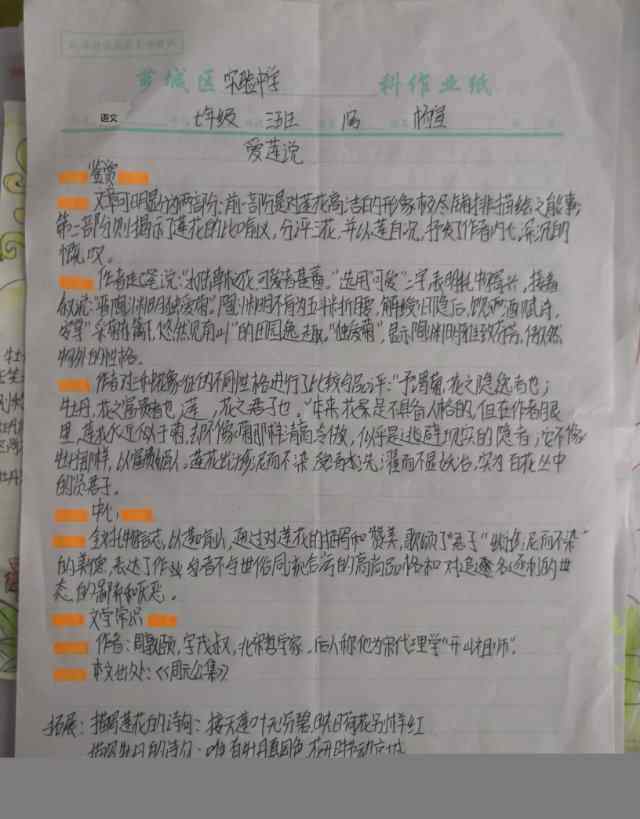 芗城区实验中学 科作业纸
语文 七年级 班 杨
爱莲说
鉴赏
文章可明显分两部分:前一部分是对莲花高洁的形象极尽铺排描绘之能事;
第二部分则揭示了莲花的比喻义,分评三花,并以莲自况,抒发了作者内心深沉的
慨叹。
作者起笔说:"水陆草木之花,可爱者甚蕃。"选用"可爱"二字 接着
叙说:"晋陶渊明独爱菊。"陶渊明不肯为五斗米折腰,解绶归隐后,饮酒赋诗,
安享"采菊东篱下,悠然见南山"的田园逸趣。"独爱菊",显示陶渊明 傲然
物外的性格。
作者对三种 象征的不同性格进行了比较和品评:"予谓菊,花之隐逸者也;
牡丹,花之富贵者也,莲,花之君子也。"本来,花是不具备人格的,但在作者眼
里,莲花 近似于菊,却不像菊那样清高冷傲,似乎是逃避现实的隐者;它不像
牡丹那样,以富贵媚人。莲花出淤泥而不染, 濯而不显妖冶,实为百花丛中
的贤君子。
中心:
全对 托物言志,以莲 ,通过对莲花的描写和赞美,歌颂了"君子""出淤泥而不染"
的美德,表达了作者不与世俗同流合污的高尚品格和对追逐名利的世
态的鄙弃和厌恶。
文学常识
作者:周敦颐,字茂叔,北宋哲学家,后人称他为宋代理学"开山祖师"。
本文出处:《周元公集》
拓展:描写莲花的诗句:接天莲叶无穷碧 映日荷花别样红
描写牡丹的诗句:唯有牡丹真国色 花开时节动京城